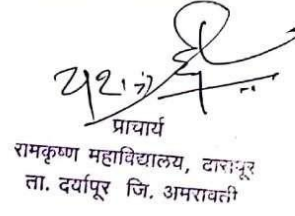 प्राचार्य
रामकृष्ण महाविद्यालय, दारापूर
ता. दर्यापूर जि. अमरावती